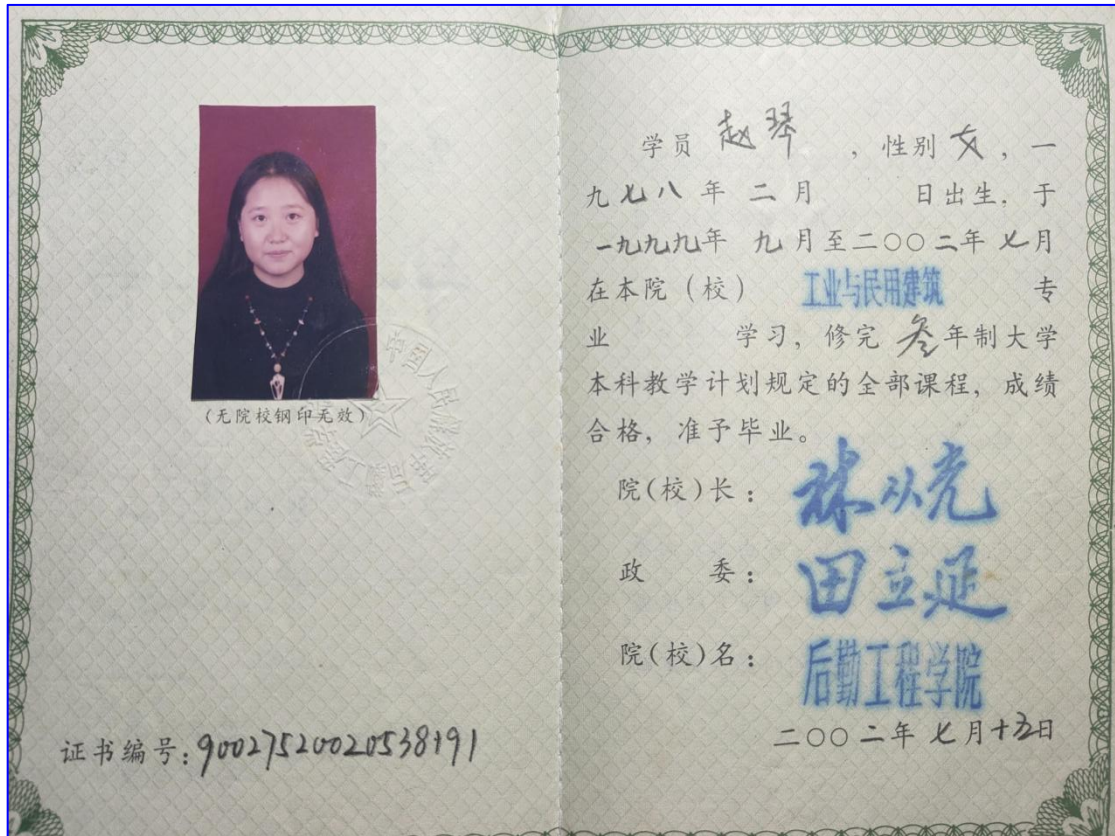 (无院校钢印无效)
证书编号:90027520020538191
学员 赵琴 ,性别 女,一
九七八年 二月 日出生,于
一九九九年 九月至二〇〇二年 七月
在本院(校) 工业与民用建筑 专
业 学习,修完 叁年制大学
本科教学计划规定的全部课程,成绩
合格,准予毕业。
院(校)长:林从亮
政 委:田立延
院(校)名:后勤工程学院
二〇〇二年 七月十五日